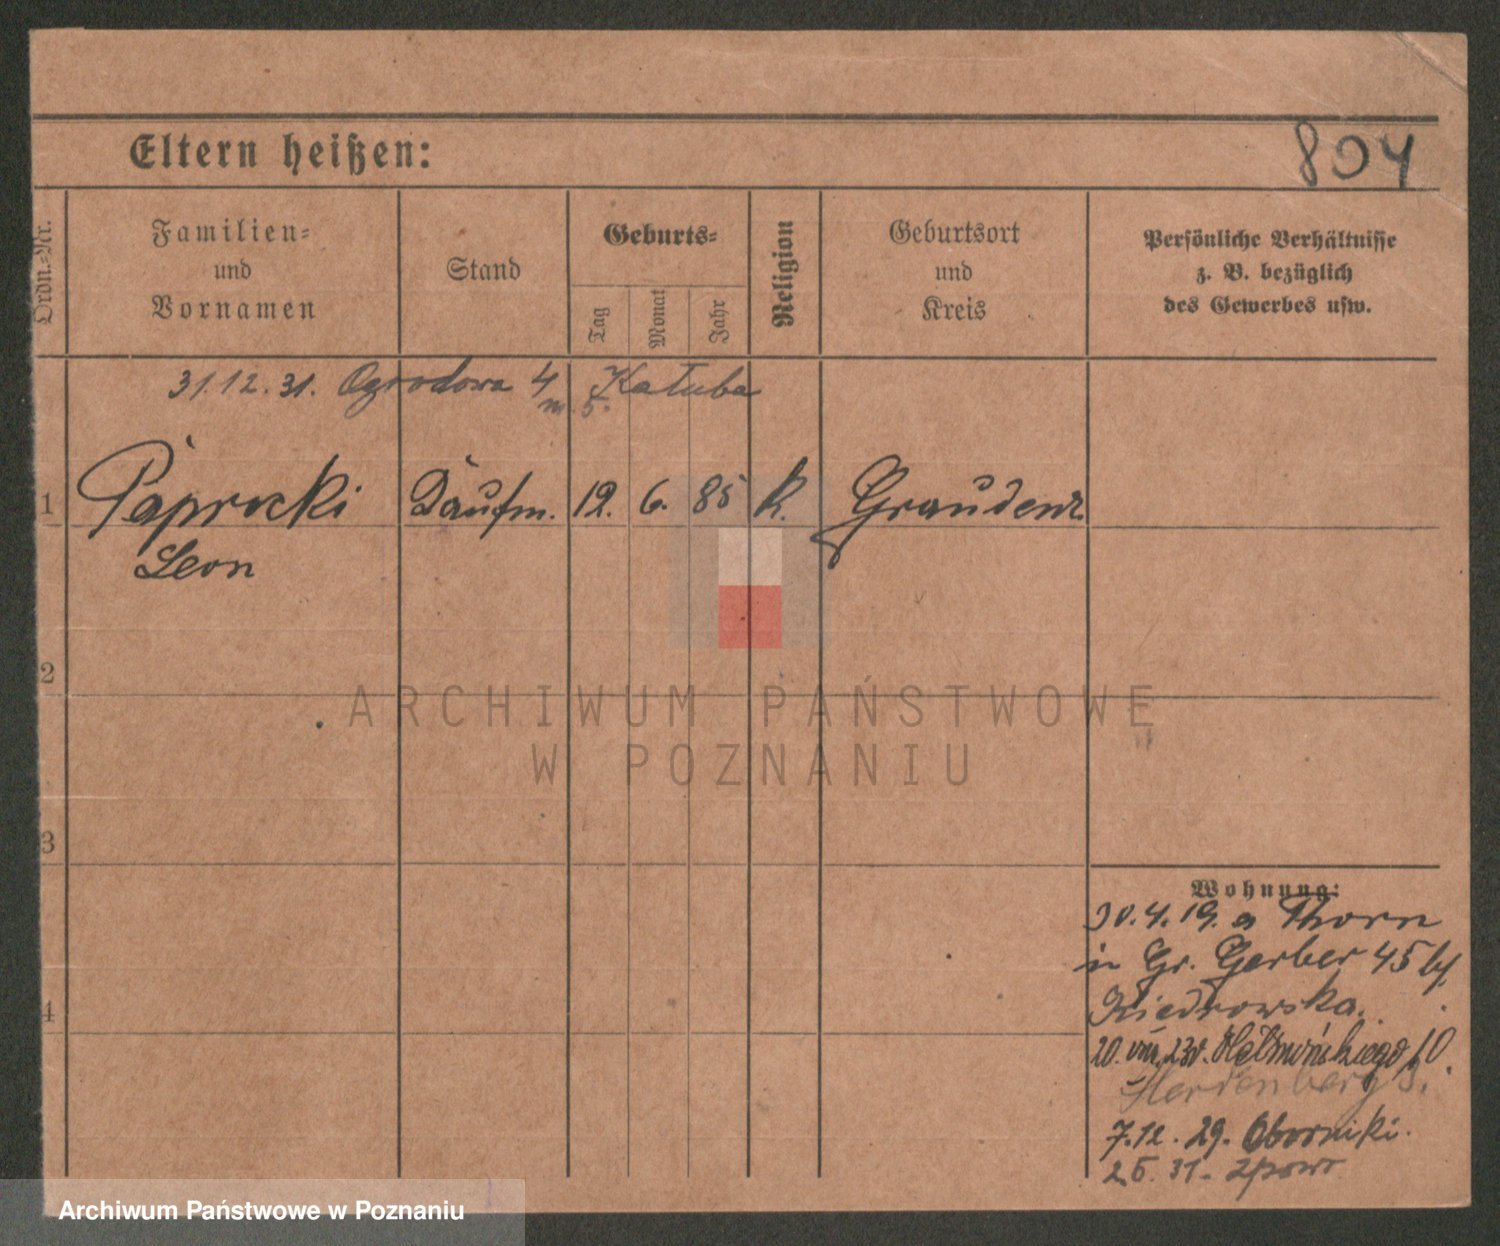 Eltern heißen:
804
Ordn.-Nr.
Familien-
und
Vornamen
Stand
Geburts-
Tag
Monat
Jahr
Religion
Geburtsort
und
Kreis
Persönliche Verhältnisse
z. B. bezüglich
des Gewerbes usw.
31.12.31. Ogrodowa 4 Katuba
m. 5.
1 Paprocki Kaufm. 12. 6. 85 K. Graudenz
Leon
2
3
4
Wohnung:
30.4.19. a Thorn
in Gr. Gerber 45 bj
Kiedrowska.
20. VIII. 23
10.
7.12.29. Oborniki.
2.5.31.
ARCHIWUM PAŃSTWOWE
W POZNANIU
Archiwum Państwowe w Poznaniu